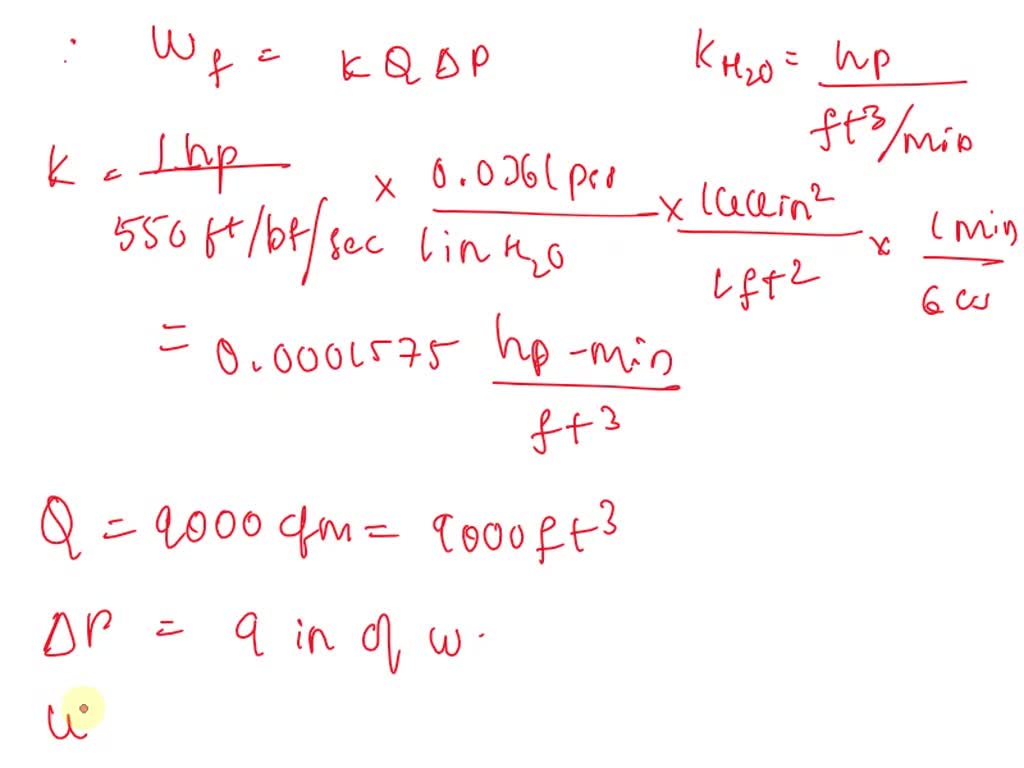 ∴ W_f = K Q ΔP   K_H₂O = hp / ft³/min
K = 1 hp / 550 ft/bf/sec × 0.0361 psi / 1 in H₂O × 144 in² / 1 ft² × 1 min / 60
= 0.0001575 hp-min / ft³
Q = 9000 cfm = 9000 ft³
ΔP = 9 in of w.